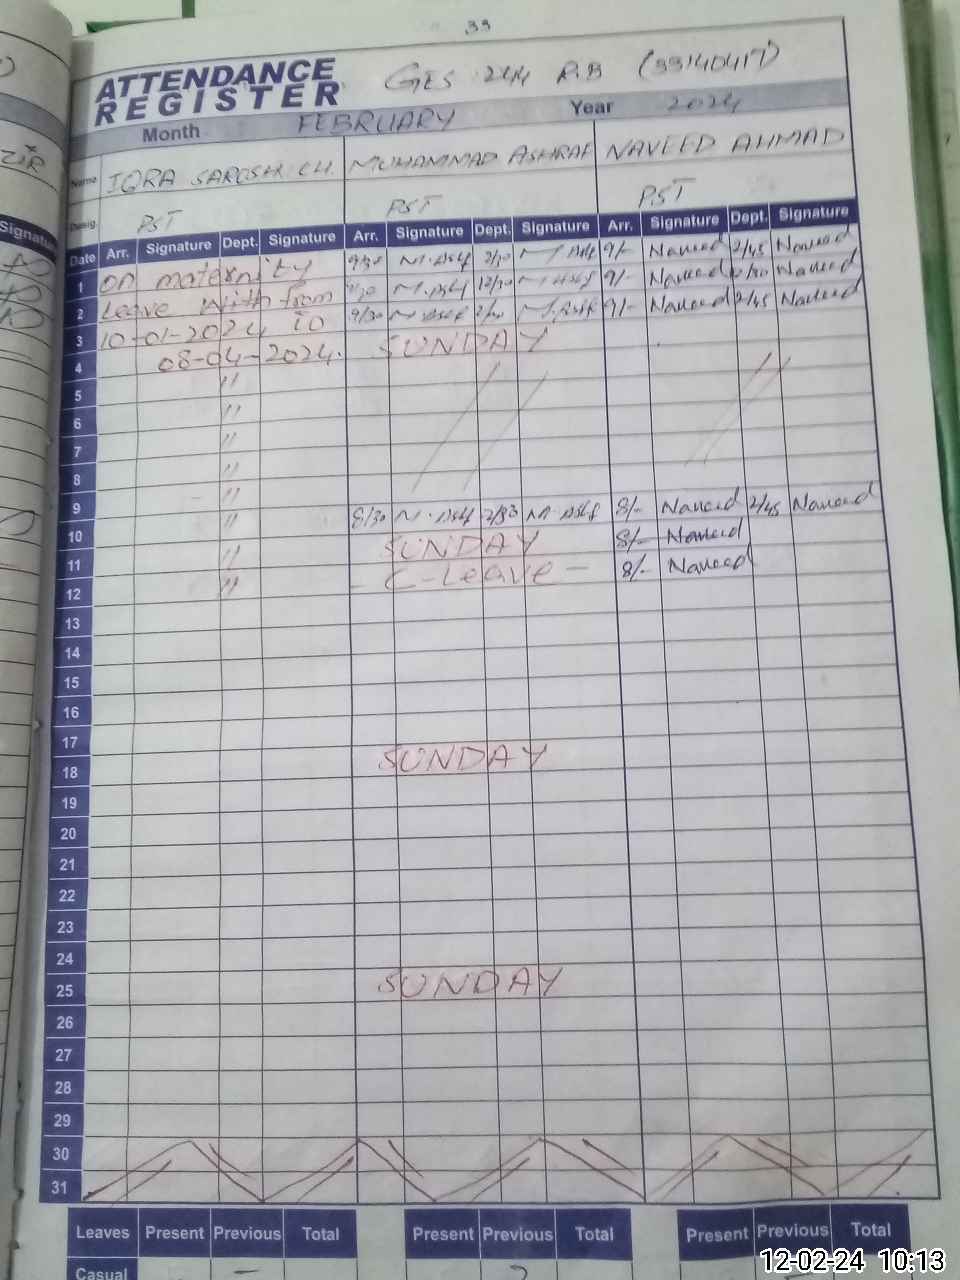 33
ATTENDANCE REGISTER GES 244 R.B (33140417)
Month FEBRUARY Year 2024
Name IQRA SAROSH CH. MUHAMMAD ASHRAF NAVEED AHMAD
Desig. PST PST PST
Date Arr. Signature Dept. Signature Arr. Signature Dept. Signature Arr. Signature Dept. Signature
1 on maternity 9/30 M.Ashf 2/30 M.Ashf 9/- Naveed 2/45 Naveed
2 Leave with from M.Ashf 12/30 M.Ashf 9/- Naveed Naveed
3 10-01-2024 to 9/30 M.Ashf M.Ashf 9/- Naveed 2/45 Naveed
4 08-04-2024. SUNDAY
5 "
6 "
7 "
8 "
9 "
10 " 8/30 M.Ashf 2/30 M.Ashf 8/- Naveed 2/45 Naveed
11 " SUNDAY 8/- Naveed
12 " - C-Leave - 8/- Naveed
13
14
15
16
17
18 SUNDAY
19
20
21
22
23
24
25 SUNDAY
26
27
28
29
30
31
Leaves Present Previous Total Present Previous Total Present Previous Total
Casual -
12-02-24 10:13